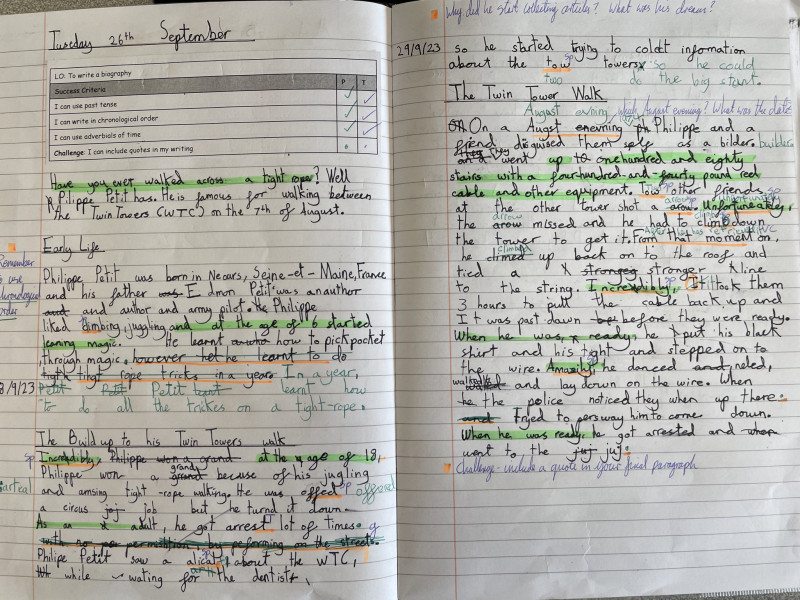 Tuesday 26th September
LO: To write a biography
Success Criteria P T
I can use past tense
I can write in chronological order
I can use adverbials of time
Challenge: I can include quotes in my writing
Have you ever walked across a tight rope? Well
Pilippe Petit has. He is famous for walking between
the Twin Towers (WTC) on the 7th of August.
Early Life
Remember to use chronological order
Philippe Petit was born in Nears, Seine-et-Maine, France
and his father was Edmon Petit was an author
and and author and army pilot. He Philippe
liked climbing, juggling and at the age of 6 started
leaning magic. He learnt how to pickpocket
through magic, however he learnt to do
tight rope tricks in a year. In a year,
8/9/23 Petit learnt how
to do all the trickes on a tight-rope.
The Build up to his Twin Towers walk
sp Incredibly, Philippe won a grand at the age of 18,
Philippe won a grand because of his jugling
and amsing tight-rope walking. He was offed sp offered
a circus job but he turnd it down.
As an adult, he got arrest lot of times. g
with no permition by peforming on the streets.
Philipe Petit saw a alical sp about the WTC,
while wating for the dentist,
Why did he start collecting articles? What was his dream?
29/9/23 so he started trying to coldt information
about the tow sp towers so he could
two do the big stunt.
The Twin Tower Walk
August evning which August evening? What was the date
On a Augst enevning Philippe and a
friend disguised them self as a bilder. builder
They went up to onehundred and eighty
stairs with a fourhundred-and-fourty pound red
cable and other equipment. Tow other friends sp
at the other tower shot a arow. Unfortuneatley,
arrow
the arow missed and he had to climb down
the tower to get it. From that moment on,
climbed
he climed up back on to the roof and
tied a stronger line
to the string. Increadibly, it took them
3 hours to pull the cable back up and
It was past dawn before they were ready.
When he was ready, he put his black
shirt and his tight and stepped on to
the wire. Amazingly he danced neled,
walked and lay down on the wire. When
he the police noticed they when up there.
and Tried to persway him to come down.
When he was ready, he got arrested and
went to the
Challenge - include a quote in your final paragraph